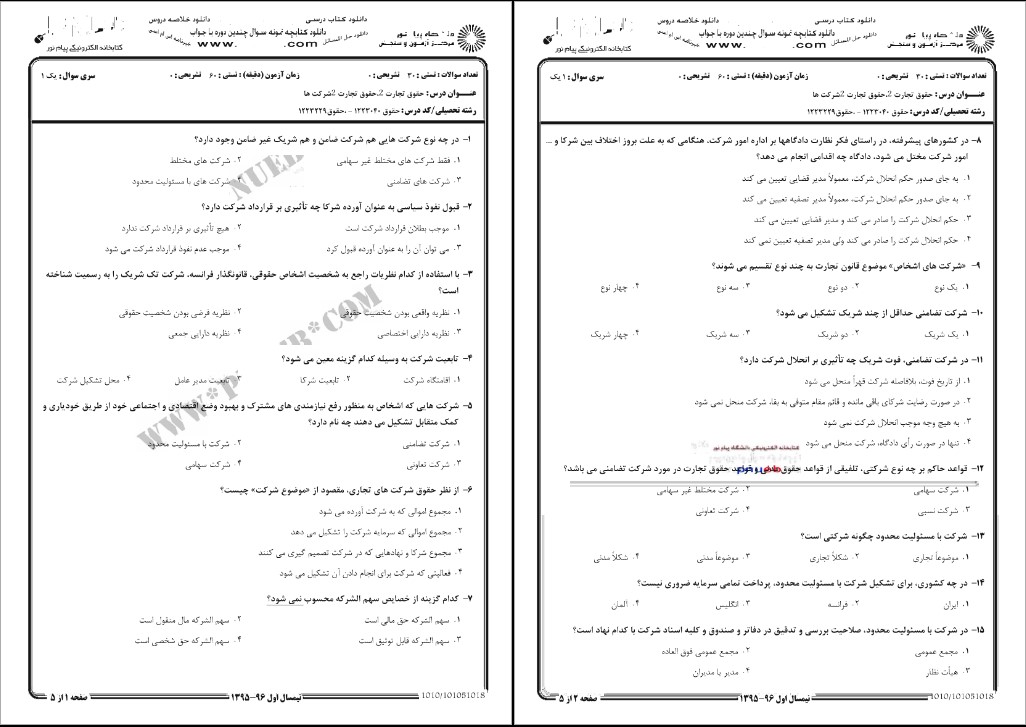 دانلود کتاب درسی
دانلود خلاصه دروس
دانلود کتابچه نمونه سوال چندین دوره با جواب
www. .com
مرکز آزمون و سنجش
کتابخانه الکترونیکی پیام نور
تعداد سوالات : تستی : ۳۰ تشریحی : ۰
زمان آزمون (دقیقه) : تستی : ۶۰ تشریحی : ۰
سری سوال : یک ۱
عنــوان درس : حقوق تجارت 2،حقوق تجارت 2شرکت ها
رشته تحصیلی/کد درس : حقوق ۱۲۲۳۰۴۰ - ،حقوق۱۲۲۳۲۲۹
۱- در چه نوع شرکت هایی هم شرکت ضامن و هم شریک غیر ضامن وجود دارد؟
۱. فقط شرکت های مختلط غیر سهامی
۲. شرکت های مختلط
۳. شرکت های تضامنی
۴. شرکت های با مسئولیت محدود
۲- قبول نفوذ سیاسی به عنوان آورده شرکا چه تأثیری بر قرارداد شرکت دارد؟
۱. موجب بطلان قرارداد شرکت است
۲. هیچ تأثیری بر قرارداد شرکت ندارد
۳. می توان آن را به عنوان آورده قبول کرد
۴. موجب عدم نفوذ قرارداد شرکت می شود
۳- با استفاده از کدام نظریات راجع به شخصیت اشخاص حقوقی، قانونگذار فرانسه، شرکت تک شریک را به رسمیت شناخته
است؟
۱. نظریه واقعی بودن شخصیت حقوقی
۲. نظریه فرضی بودن شخصیت حقوقی
۳. نظریه دارایی اختصاصی
۴. نظریه دارایی جمعی
۴- تابعیت شرکت به وسیله کدام گزینه معین می شود؟
۱. اقامتگاه شرکت
۲. تابعیت شرکا
۳. تابعیت مدیر عامل
۴. محل تشکیل شرکت
۵- شرکت هایی که اشخاص به منظور رفع نیازمندی های مشترک و بهبود وضع اقتصادی و اجتماعی خود از طریق خودیاری و
کمک متقابل تشکیل می دهند چه نام دارد؟
۱. شرکت تضامنی
۲. شرکت با مسئولیت محدود
۳. شرکت تعاونی
۴. شرکت سهامی
۶- از نظر حقوق شرکت های تجاری، مقصود از «موضوع شرکت» چیست؟
۱. مجموع اموالی که به شرکت آورده می شود
۲. مجموع اموالی که سرمایه شرکت را تشکیل می دهد
۳. مجموع شرکا و نهادهایی که در شرکت تصمیم گیری می کنند
۴. فعالیتی که شرکت برای انجام دادن آن تشکیل می شود
۷- کدام گزینه از خصایص سهم الشرکه محسوب نمی شود؟
۱. سهم الشرکه حق مالی است
۲. سهم الشرکه مال منقول است
۳. سهم الشرکه قابل توثیق است
۴. سهم الشرکه حق شخصی است
صفحه ۱ از ۵
نیمسال اول ۹۶-۱۳۹۵
1010/101051018
دانلود کتاب درسی
دانلود خلاصه دروس
دانلود کتابچه نمونه سوال چندین دوره با جواب
www. .com
مرکز آزمون و سنجش
کتابخانه الکترونیکی پیام نور
تعداد سوالات : تستی : ۳۰ تشریحی : ۰
زمان آزمون (دقیقه) : تستی : ۶۰ تشریحی : ۰
سری سوال : ۱ یک
عنــوان درس : حقوق تجارت 2،حقوق تجارت 2شرکت ها
رشته تحصیلی/کد درس : حقوق ۱۲۲۳۰۴۰ - ،حقوق۱۲۲۳۲۲۹
۸- در کشورهای پیشرفته، در راستای فکر نظارت دادگاهها بر اداره امور شرکت، هنگامی که به علت بروز اختلاف بین شرکا و ...
امور شرکت مختل می شود، دادگاه چه اقدامی انجام می دهد؟
۱. به جای صدور حکم انحلال شرکت، معمولاً مدیر قضایی تعیین می کند
۲. به جای صدور حکم انحلال شرکت، معمولاً مدیر تصفیه تعیین می کند
۳. حکم انحلال شرکت را صادر می کند و مدیر قضایی تعیین می کند
۴. حکم انحلال شرکت را صادر می کند ولی مدیر تصفیه تعیین نمی کند
۹- «شرکت های اشخاص» موضوع قانون تجارت به چند نوع تقسیم می شوند؟
۱. یک نوع
۲. دو نوع
۳. سه نوع
۴. چهار نوع
۱۰- شرکت تضامنی حداقل از چند شریک تشکیل می شود؟
۱. یک شریک
۲. دو شریک
۳. سه شریک
۴. چهار شریک
۱۱- در شرکت تضامنی، فوت شریک چه تأثیری بر انحلال شرکت دارد؟
۱. از تاریخ فوت، بلافاصله شرکت قهراً منحل می شود
۲. در صورت رضایت شرکای باقی مانده و قائم مقام متوفی به بقا، شرکت منحل نمی شود
۳. به هیچ وجه موجب انحلال شرکت نمی شود
۴. تنها در صورت رأی دادگاه، شرکت منحل می شود
کتابخانه الکترونیکی دانشگاه پیام نور
۱۲- قواعد حاکم بر چه نوع شرکتی، تلفیقی از قواعد حقوق مدنی و قواعد حقوق تجارت در مورد شرکت تضامنی می باشد؟
۱. شرکت سهامی
۲. شرکت مختلط غیر سهامی
۳. شرکت نسبی
۴. شرکت تعاونی
۱۳- شرکت با مسئولیت محدود چگونه شرکتی است؟
۱. موضوعاً تجاری
۲. شکلاً تجاری
۳. موضوعاً مدنی
۴. شکلاً مدنی
۱۴- در چه کشوری، برای تشکیل شرکت با مسئولیت محدود، پرداخت تمامی سرمایه ضروری نیست؟
۱. ایران
۲. فرانسه
۳. انگلیس
۴. آلمان
۱۵- در شرکت با مسئولیت محدود، صلاحیت بررسی و تدقیق در دفاتر و صندوق و کلیه اسناد شرکت با کدام نهاد است؟
۱. مجمع عمومی
۲. مجمع عمومی فوق العاده
۳. هیأت نظار
۴. مدیر یا مدیران
صفحه ۲ از ۵
نیمسال اول ۹۶-۱۳۹۵
1010/101051018